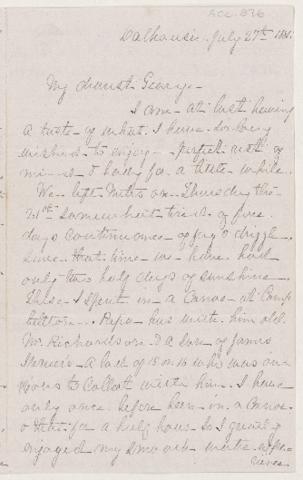 Dalhousie. July 27th 1881.
My dearest George -
I am at last having
a taste of what I have so long
wished to enjoy - perfect rest of
mind & body for a little while.
We left on Thursday the
21st somewhat tired of five
days continuance of fog & drizzle.
Since that time we have had
only two half days of sunshine -
These I spent in a Canoe at Camp
bellton. Papa has with him old
Mr. Richardson & a son of James
a lad of 15 or 16 who was anx
ious to collect with him. I have
only once before been in a Canoe
& that for a half hour. So I greatly
enjoyed my two with